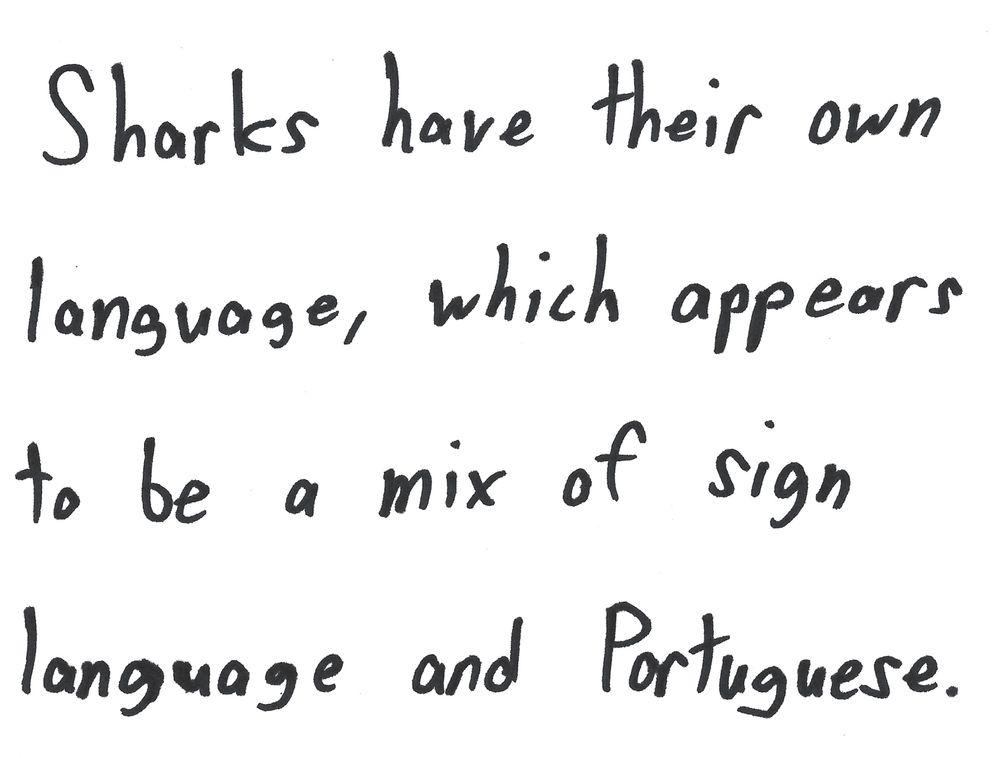 Sharks have their own
language, which appears
to be a mix of sign
language and Portuguese.